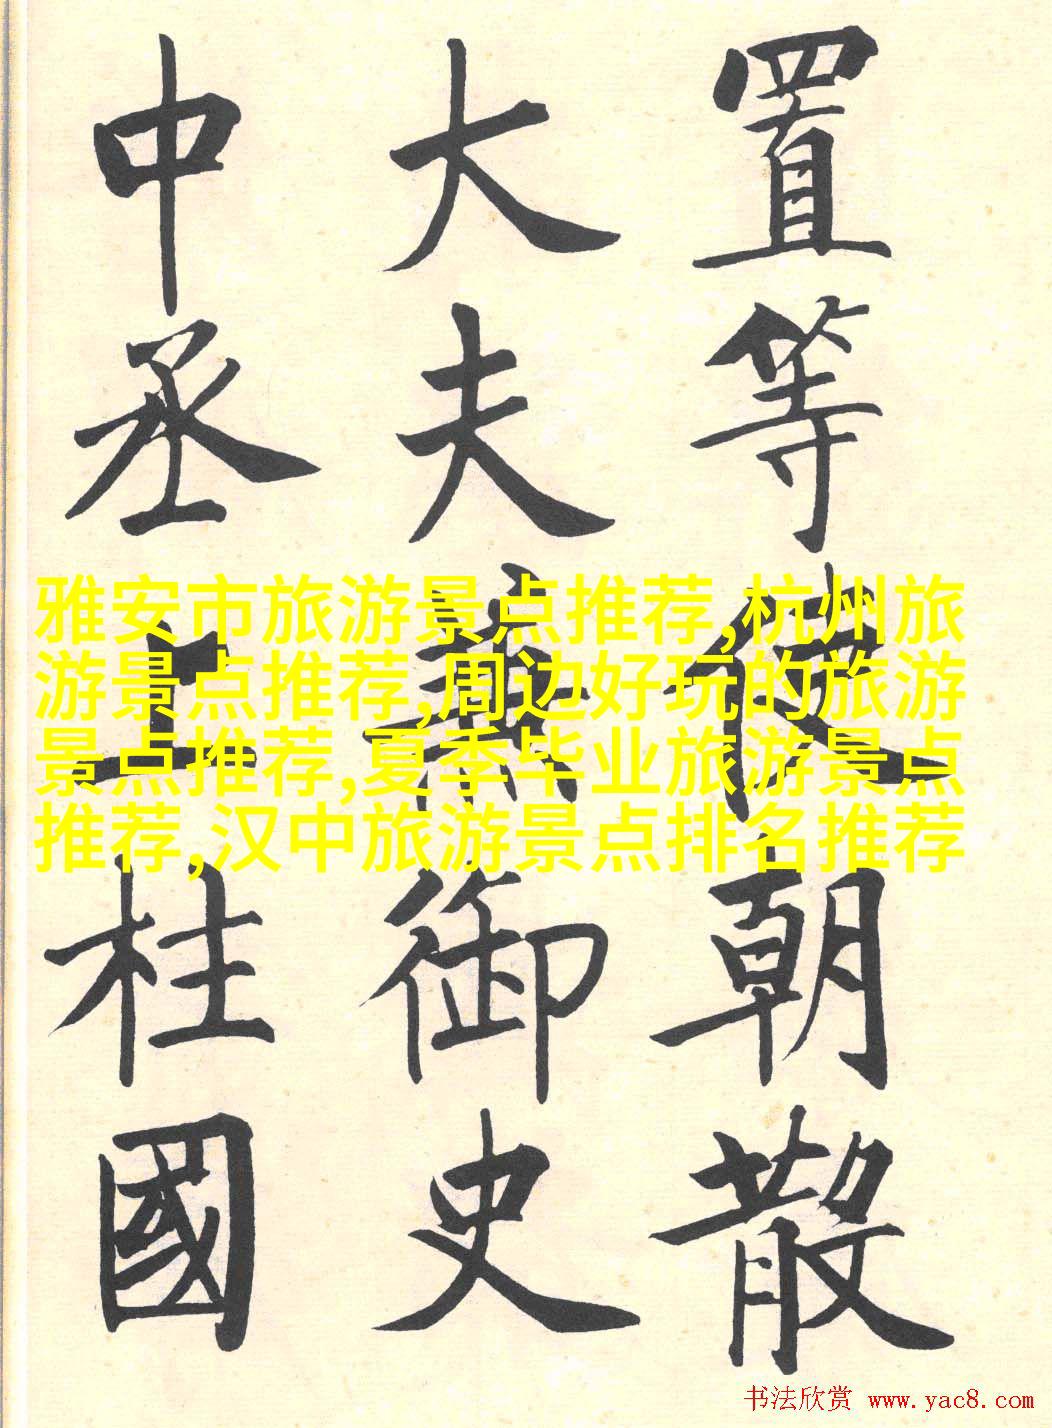 置等使朝散
大夫兼御史
中丞上柱國
雅安市旅游景点推荐,杭州旅
游景点推荐,周边好玩的旅游
景点推荐,夏季毕业旅游景点
推荐,汉中旅游景点排名推荐
书法欣赏 www.yac8.com